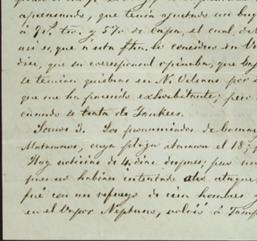 apresurado, que tenia ajustado un buq
y 5% de Capa, el cual, deb
asi es, que a esta fha. lo considero en V
dice, que su corresponsal opinaba, que hap
se temian quiebras en N. Orleans por e
que me ha parecido exhorbitante; pero
cuando se trata de Yankees.
Lunes 3. Los pronunciados de Camar
Matamoros, cuya plaza atacaron el 18
Hay noticias de 4 dias despues; pero un
pues no habian intentado otro ataque,
fué con un refuerzo de cien hombres y
en el Vapor Neptuno, volvió á Tamp